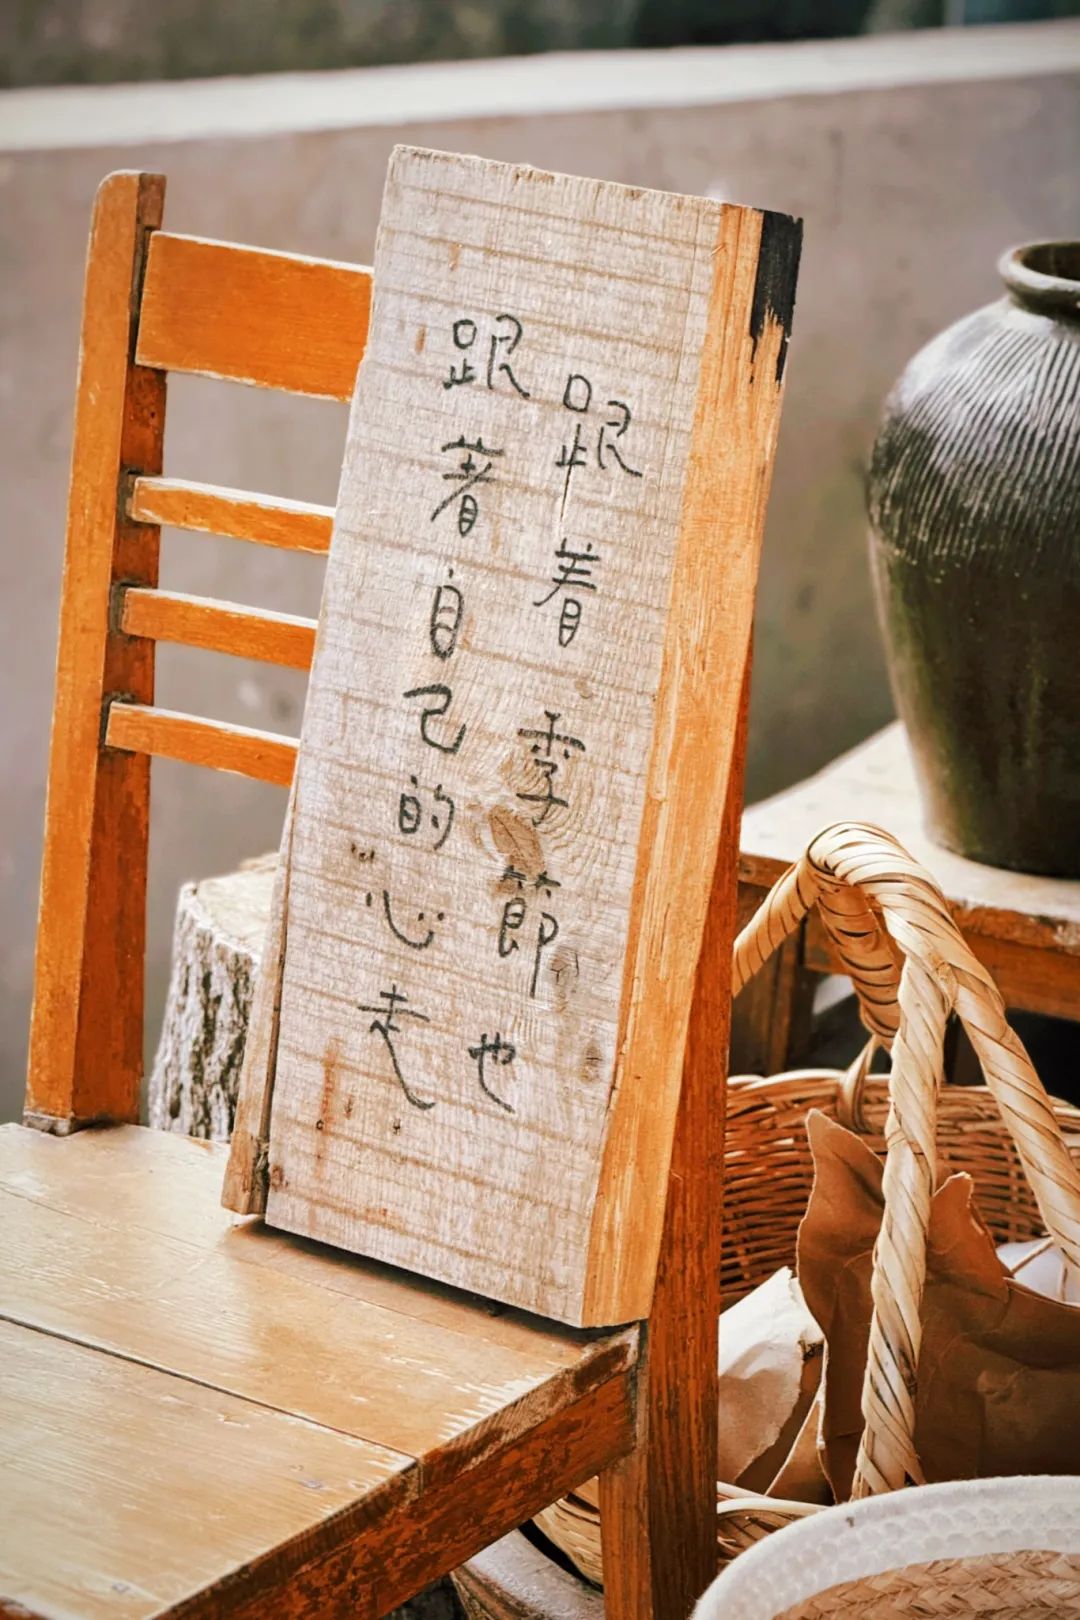 跟着季節也
跟著自己的心走